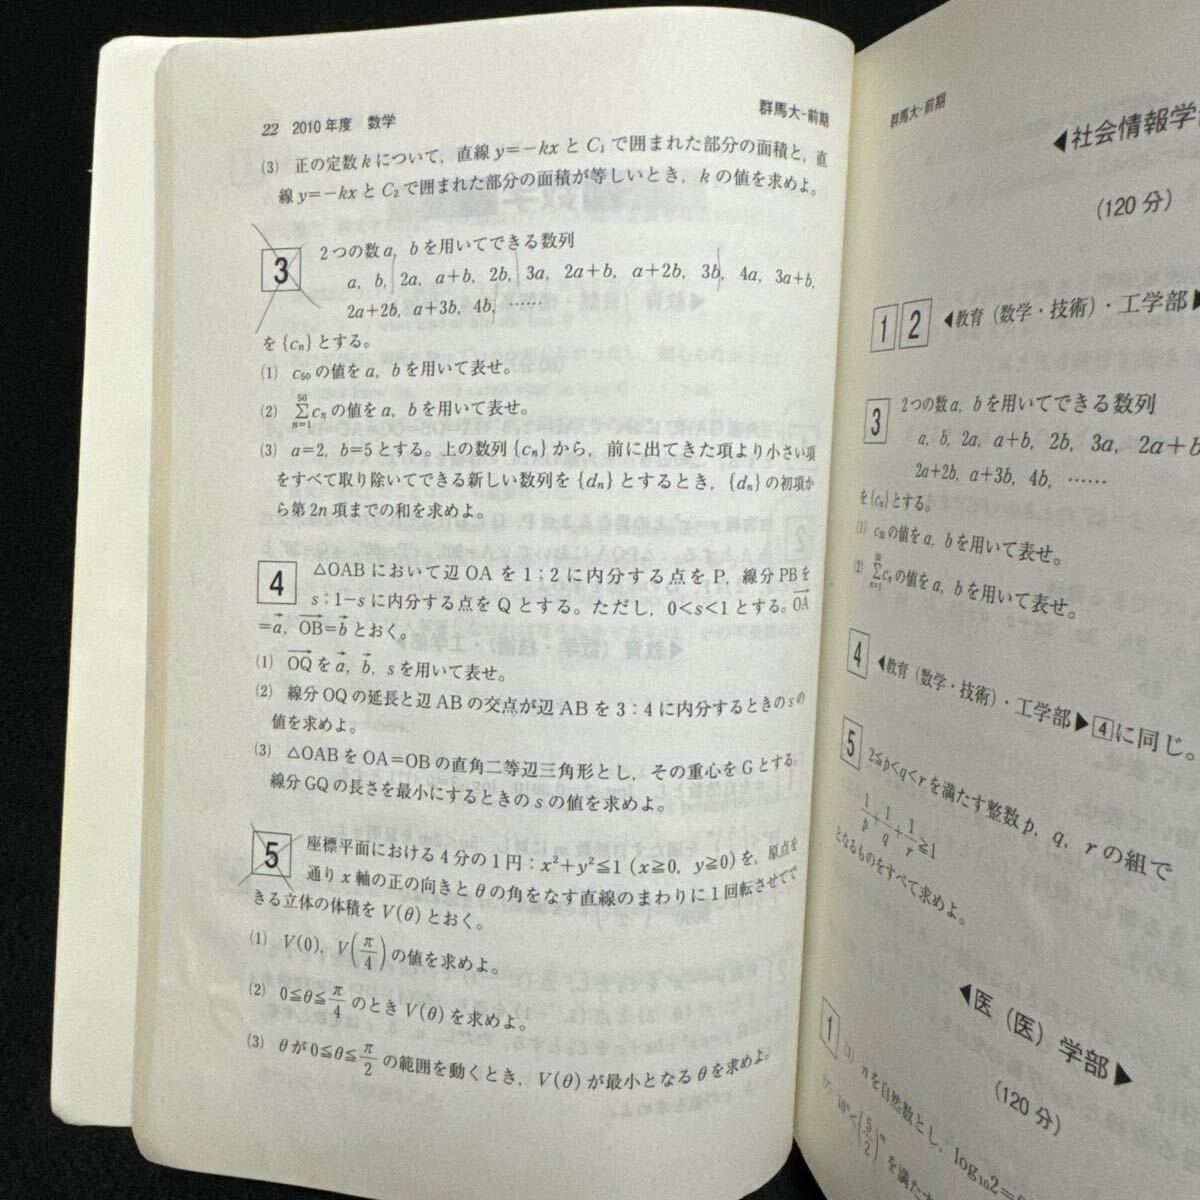 22 2010年度 数学
群馬大-前期
(3) 正の定数kについて,直線y=-kxとC₁で囲まれた部分の面積と,直
線y=-kxとC₂で囲まれた部分の面積が等しいとき,kの値を求めよ。
3
2つの数a, bを用いてできる数列
a, b, 2a, a+b, 2b, 3a, 2a+b, a+2b, 3b, 4a, 3a+b,
2a+2b, a+3b, 4b, ……
を{cₙ}とする。
(1) c₅₀の値をa, bを用いて表せ。
(2) \sum_{n=1}^{50} cₙの値をa, bを用いて表せ。
(3) a=2, b=5とする。上の数列{cₙ}から,前に出てきた項より小さい項
をすべて取り除いてできる新しい数列を{dₙ}とするとき,{dₙ}の初項か
ら第2n項までの和を求めよ。
4
△OABにおいて辺OAを1:2に内分する点をP,線分PBを
s:1-sに内分する点をQとする。ただし,0<s<1とする。\overrightarrow{OA}
=\vec{a}, \overrightarrow{OB}=\vec{b}とおく。
(1) \overrightarrow{OQ}を\vec{a}, \vec{b}, sを用いて表せ。
(2) 線分OQの延長と辺ABの交点が辺ABを3:4に内分するときのsの
値を求めよ。
(3) △OABをOA=OBの直角二等辺三角形とし,その重心をGとする。
線分GQの長さを最小にするときのsの値を求めよ。
5
座標平面における4分の1円:x²+y²≦1 (x≧0, y≧0)を,原点を
通りx軸の正の向きとθの角をなす直線のまわりに1回転させてで
きる立体の体積をV(θ)とおく。
(1) V(0), V(π/4)の値を求めよ。
(2) 0≦θ≦π/4のときV(θ)を求めよ。
(3) θが0≦θ≦π/2の範囲を動くとき,V(θ)が最小となるθを求めよ。
群馬大-前期
◀社会情報学
(120分)
1 2 ◀教育(数学・技術)・工学部▶
3
2つの数a, bを用いてできる数列
a, b, 2a, a+b, 2b, 3a, 2a+b
2a+2b, a+3b, 4b, ……
を{cₙ}とする。
(1) の値をa, bを用いて表せ。
(2) cₙの値をa, bを用いて表せ。
4 ◀教育(数学・技術)・工学部▶4に同じ。
5
2≦p<q<rを満たす整数p, q, rの組で
1/p+1/q+1/r≧1
となるものをすべて求めよ。
◀医(医)学部▶
(120分)
1
(1) nを自然数とし,log₁₀2=
10ⁿ<(5/2)ᵐを満た